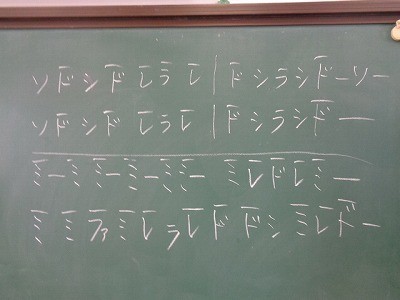 ソド̅シド̅レ̅ラレ̅｜ド̅シラシド̅ーソー
ソド̅シド̅レ̅ラレ̅｜ド̅シラシド̅ー
ミ̅ーミ̅ミ̅ーミ̅ーミ̅ミ̅ーミ̅レ̅ド̅レ̅ミ̅ー
ミ̅ミ̅ファ̅ミ̅レ̅ラレ̅ド̅ド̅シミ̅レ̅ド̅ー